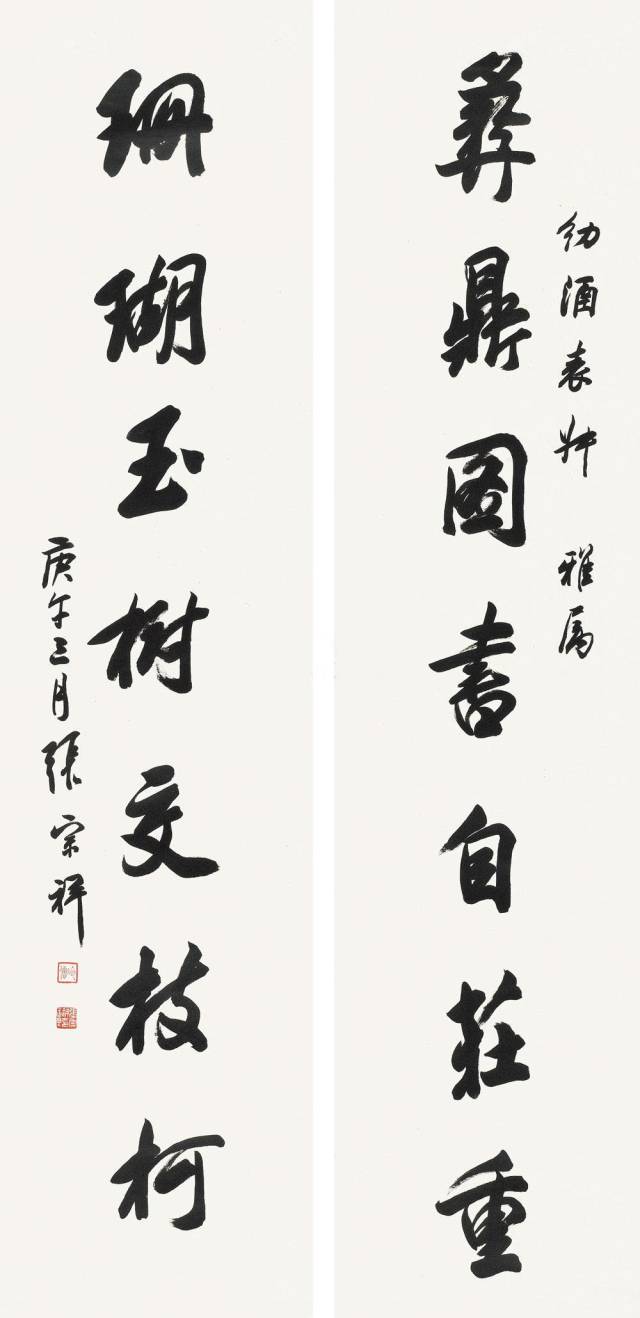 彝鼎圖書自莊重
幼酒表姊 雅属
珊瑚玉樹交枝柯
庚午三月張宗祥